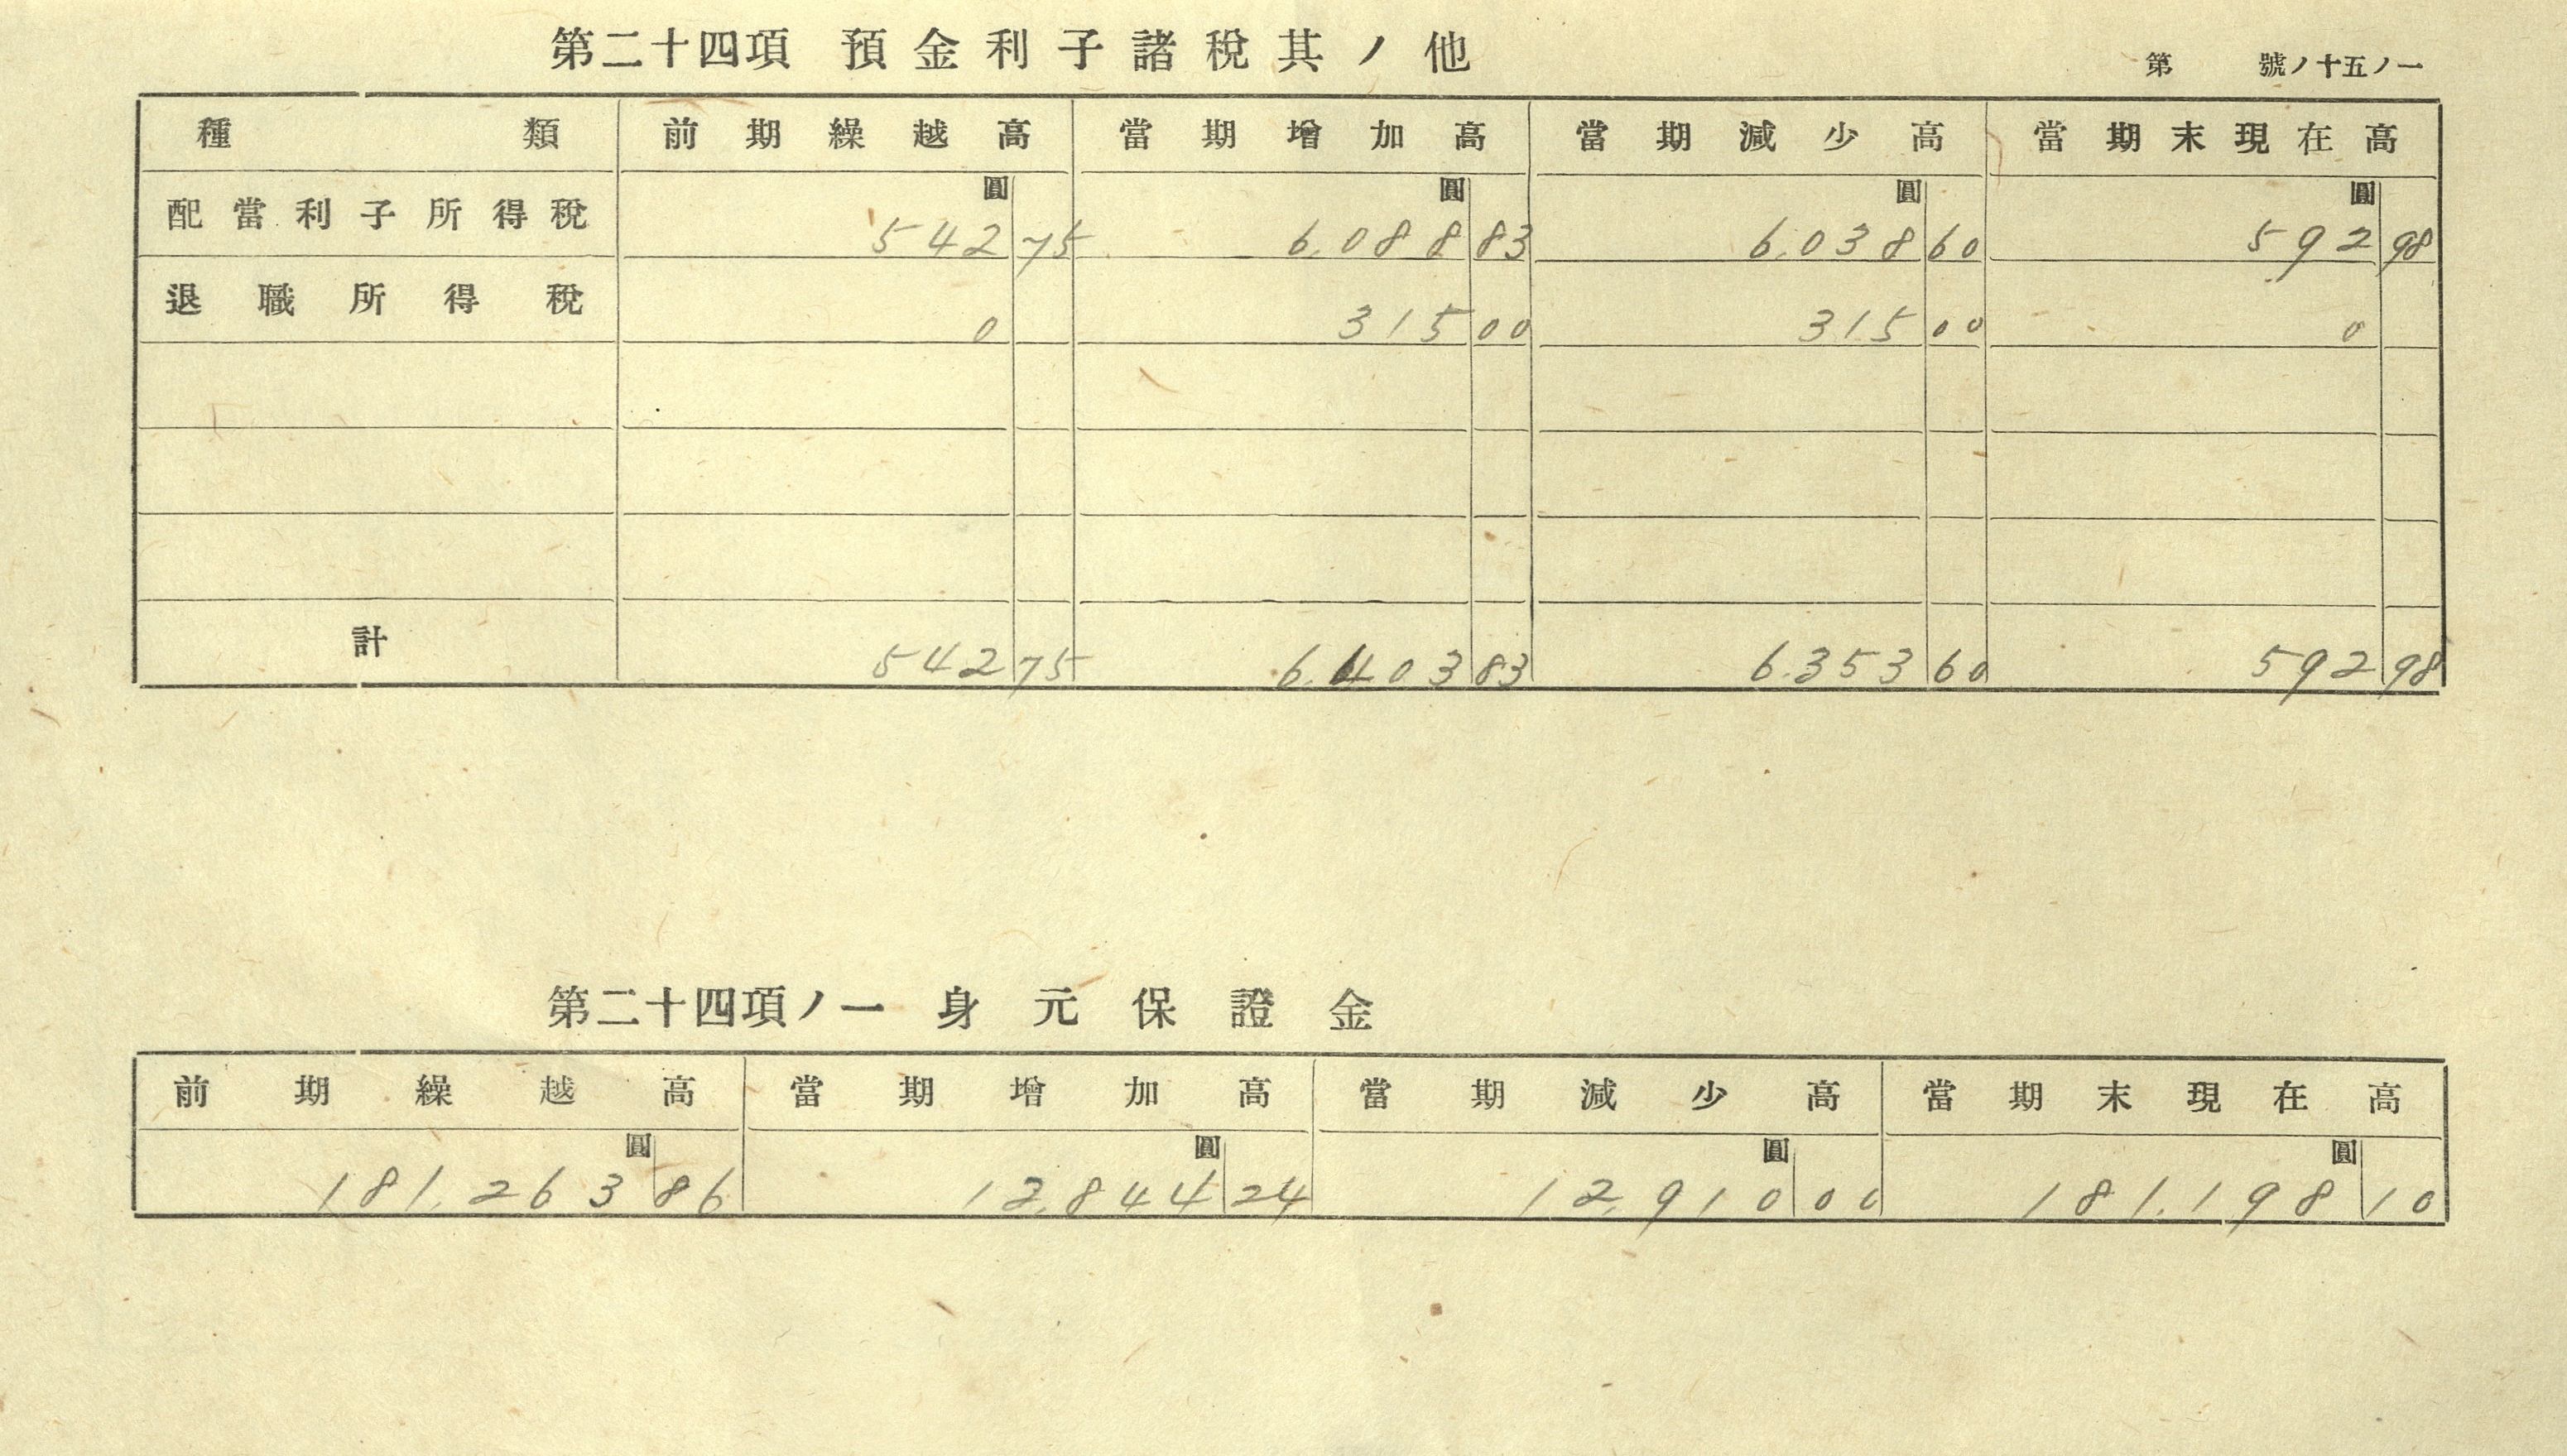 第二十四項 預金利子諸税其ノ他
第 號ノ十五ノ一
種類 前期繰越高 當期增加高 當期減少高 當期末現在高
圓 圓 圓 圓
配當利子所得税 542 75 6.088 83 6.038 60 592 98
退職所得税 0 315 00 315 00 0
計 542 75 6.403 83 6.353 60 592 98
第二十四項ノ一 身元保證金
前期繰越高 當期增加高 當期減少高 當期末現在高
圓 圓 圓 圓
181.263 86 12.844 24 12.910 00 181.198 10